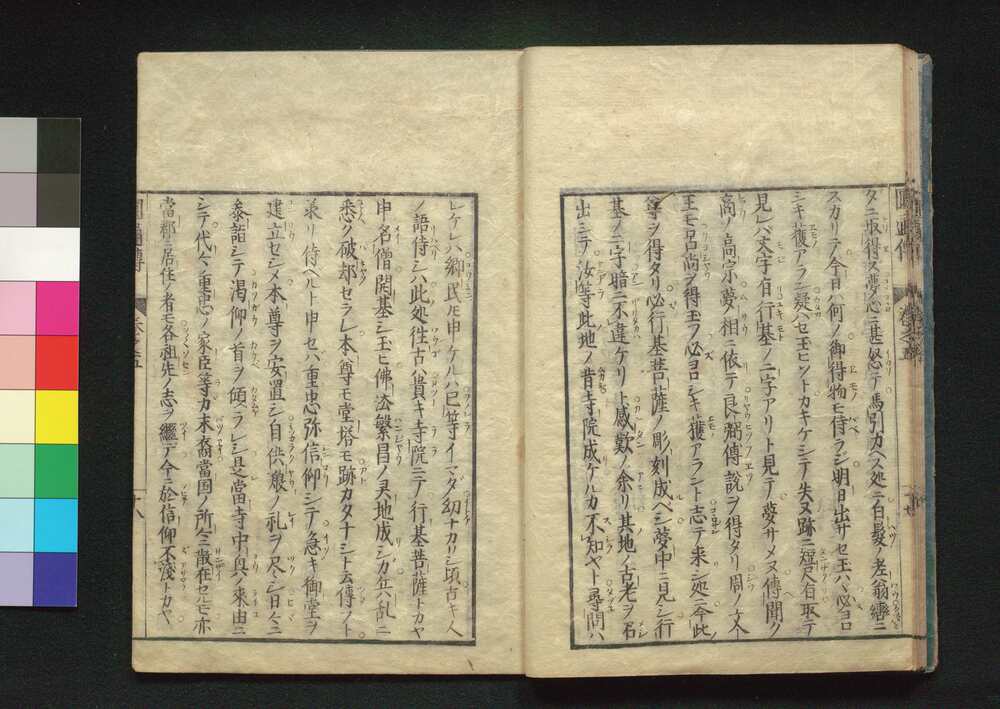 タニ取得ズ夢心ニ甚怒テ馬引カヘス処ニ白髮ノ老翁轡ニ
スカリテ今日ハ何ノ御得物モ侍ラジ明日出サセ玉ハヾ必ヨロ
シキ獲アラン疑ハセ玉ヒソトカキケシテ失ヌ跡ニ短尺有取テ
見レバ文字有行基ノ二字アリト見テ夢サメヌ傳聞ク
高ノ高宗夢ノ相ニ依テ良弼傳說ヲ得タリ周ノ文
王モ呂尚ヲ得玉フ必ヨロシキ獲アラント志テ来シ処ニ今此
等ヲ得タリ必行基菩薩ノ彫刻成ベシ夢中ニ見シ行
基ノ二字暗ニ不違ケリト感歎ノ余リ其地ノ古老ヲ召
出シテ汝等此地ノ昔寺院成ケルカ不知ヤト尋問ハ
レケレハ郷民𪜈申ケルハ已等イマタ幼ナカリシ頃古キ人
ノ語侍シハ此処往古ハ貴キ寺院ニテ行基菩薩トカヤ
申名僧開基シ玉ヒ佛法繁昌ノ灵地成シカ兵乱ニ
悉ク破却セラレ本尊モ堂塔モ跡カタナシト云傳ノト
承リ侍ヘルト申セハ重忠弥信仰シテ急キ御堂ヲ
建立セシメ本尊ヲ安置シ自供養ノ礼ヲ尽シ日々ニ
参詣シテ渇仰ノ首ヲ傾ラレシ是當寺中興ノ来由ニ
シテ代々重忠ノ家臣等カ末裔當国ノ所々ニ散在セルモ亦
當郡ニ居住ノ者モ各祖先ノ志ヲ繼デ今ニ於信仰不淺トカヤ